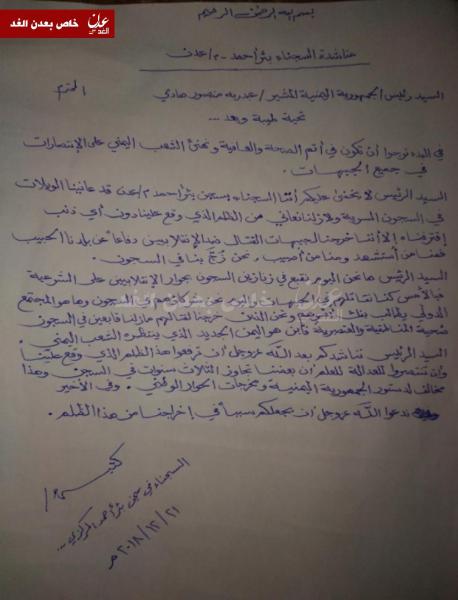 عدن الغد خاص بعدن الغد
بسم الله الرحمن الرحيم
مناشدة السجناء بئر أحمد - م/عدن
السيد رئيس الجمهورية اليمنية المشير / عبدربه منصور هادي المحترم
تحية طيبة وبعد ...
في البدء نرجوا أن تكون في أتم الصحة والعافية ونهنئ الشعب اليمني على الإنتصارات
في جميع الجبهات .
السيد الرئيس لا يخفى عليكم أننا السجناء بسجن بئر أحمد م/عدن قد عانينا الويلات
في السجون السرية ولازلنا نعاني من الظلم الذي وقع علينا دون أي ذنب
إقترفناه إلا أننا خرجنا لجبهات القتال ضد الإنقلابيين دفاعاً عن بلدنا الحبيب
فمنا من أستشهد ومنا من أصيب ، نحن زُجَّ بنا في السجون .
السيد الرئيس ها نحن اليوم نقبع في زنازين السجون بجوار الإنقلابيين على الشرعية
فبالأمس كنا نقاتلهم في الجبهات واليوم نحن شركائهم في السجون وها هو المجتمع
الدولي يطالب بفك أسرهم ونحن الذين خرجنا لقتالهم مازلنا قابعين في السجون
ضحية المناطقية والعنصرية فأين هو اليمن الجديد الذي ينتظره الشعب اليمني .
السيد الرئيس نناشدكم بعد الله عزوجل أن ترفعوا هذا الظلم الذي وقع علينا
وان تنتصروا للعدالة للعلم أن بعضنا تجاوز الثلاث سنوات في السجن وهذا
مخالف لدستور الجمهورية اليمنية ومخرجات الحوار الوطني . وفي الأخير
ندعوا الله عزوجل أن يجعلكم سبباً في إخراجنا من هذا الظلم .
السجناء في سجن بئر أحمد المركزي ...
٢٠١٨/١٢/٢١ م